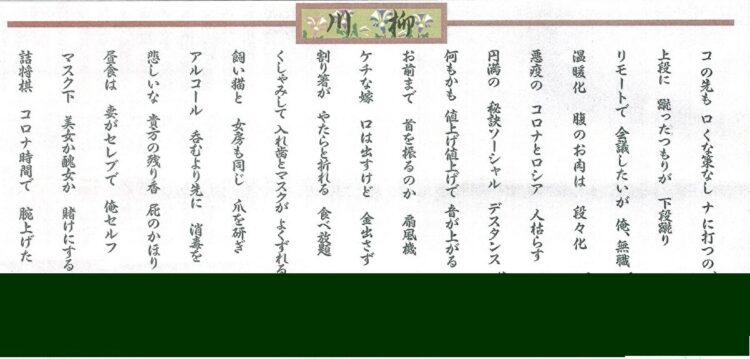 川柳
コの先も ロくな策なし ナに打つの
上段に 蹴ったつもりが 下段蹴り
リモートで 会議したいが 俺、無職
温暖化 腹のお肉は 段々化
悪疫の コロナとロシア 人枯らす
円満の 秘訣ソーシャル デスタンス
何もかも 値上げ値上げで 音が上がる
お前まで 首を振るのか 扇風機
ケチな嫁 口は出すけど 金出さず
割り箸が やたらと折れる 食べ放題
くしゃみして 入れ歯とマスクが よくずれる
飼い猫と 女房も同じ 爪を研ぎ
アルコール 呑むより先に 消毒を
悲しいな 貴方の残り香 屁のかほり
昼食は 妻がセレブで 俺セルフ
マスク下 美女か醜女か 賭けにする
詰将棋 コロナ時間で 腕上げた